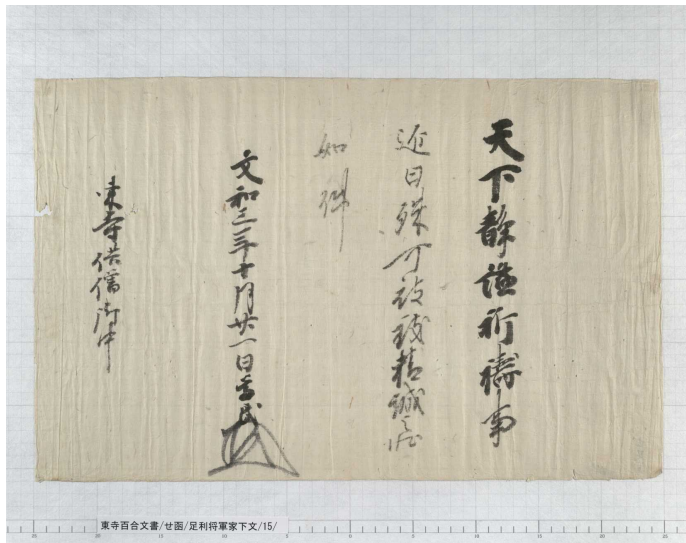 天下静謐祈祷事
近日殊可被致精誠之状
如件
文和三年十月廿一日
東寺供僧御中
東寺百合文書/せ函/足利将軍家下文/15/